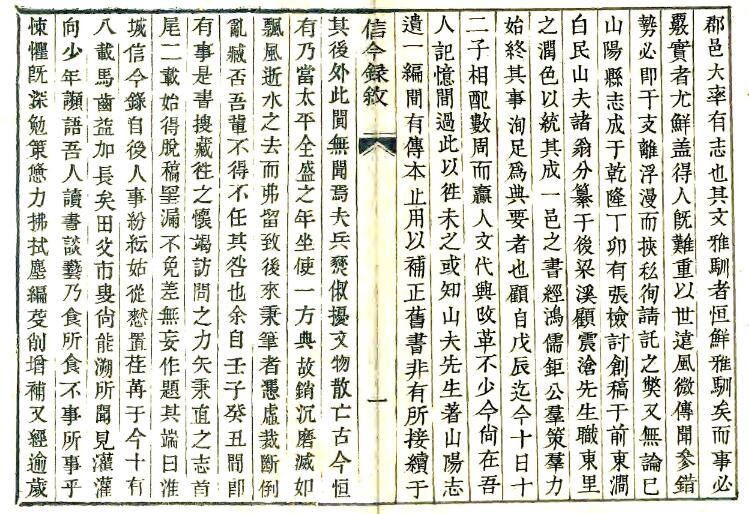 郡邑大率有志也其文雅馴者恒鮮雅馴矣而事必
覈實者尤鮮蓋得人旣難重以世遠風微傳聞參錯
勢必卽干支離浮漫而挾私徇請託之獘又無論已
山陽縣志成于乾隆丁卯有張檢討創稿于前東澗
白民山夫諸翁分纂于後梁溪顧震滄先生職東里
之潤色以統其成一邑之書經鴻儒鉅公羣策羣力
始終其事洵足爲典要者也顧自戊辰迄今十日十
二子相配數周而贏人文代興攺革不少今尙在吾
人記憶間過此以徃未之或知山夫先生著山陽志
遺一編間有傳本止用以補正舊書非有所接續于
信今録敘
一
其後外此聞無聞焉夫兵燹俶擾文物散亡古今恒
有乃當太平全盛之年坐使一方典故銷沉磨滅如
飄風逝水之去而弗留致後來秉筆者憑虛裁斷倒
亂臧否吾輩不得不任其咎也余自壬子癸丑間卽
有事是書搜藏往之懷竭訪問之力矢秉直之志首
尾二載始得脫稿罣漏不免差無妄作題其端曰淮
城信今錄自後人事紛紜姑從憖置荏苒于今十有
八載馬齒益加長矣田父市叟尙能溯所聞見灌灌
向少年灝語吾人讀書談藝乃食所食不事所事乎
悚懼旣深勉策憊力拂拭塵編芟削增補又經逾歲